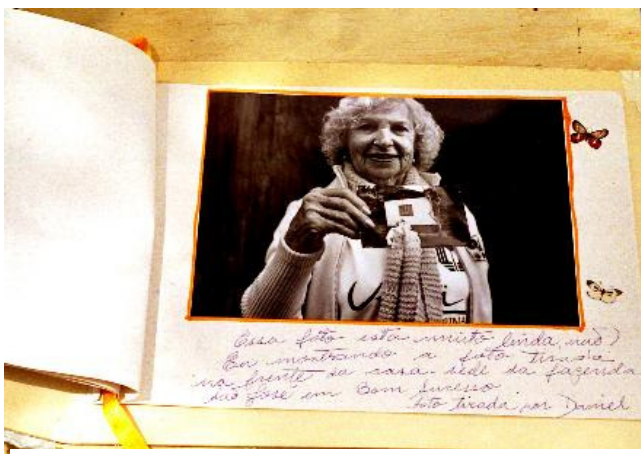 Essa foto esta muito linda, não?
Eu mostrando a foto tirada
na frente da casa sede da fazenda
São José em Bom Sucesso
Foto tirada por Daniel